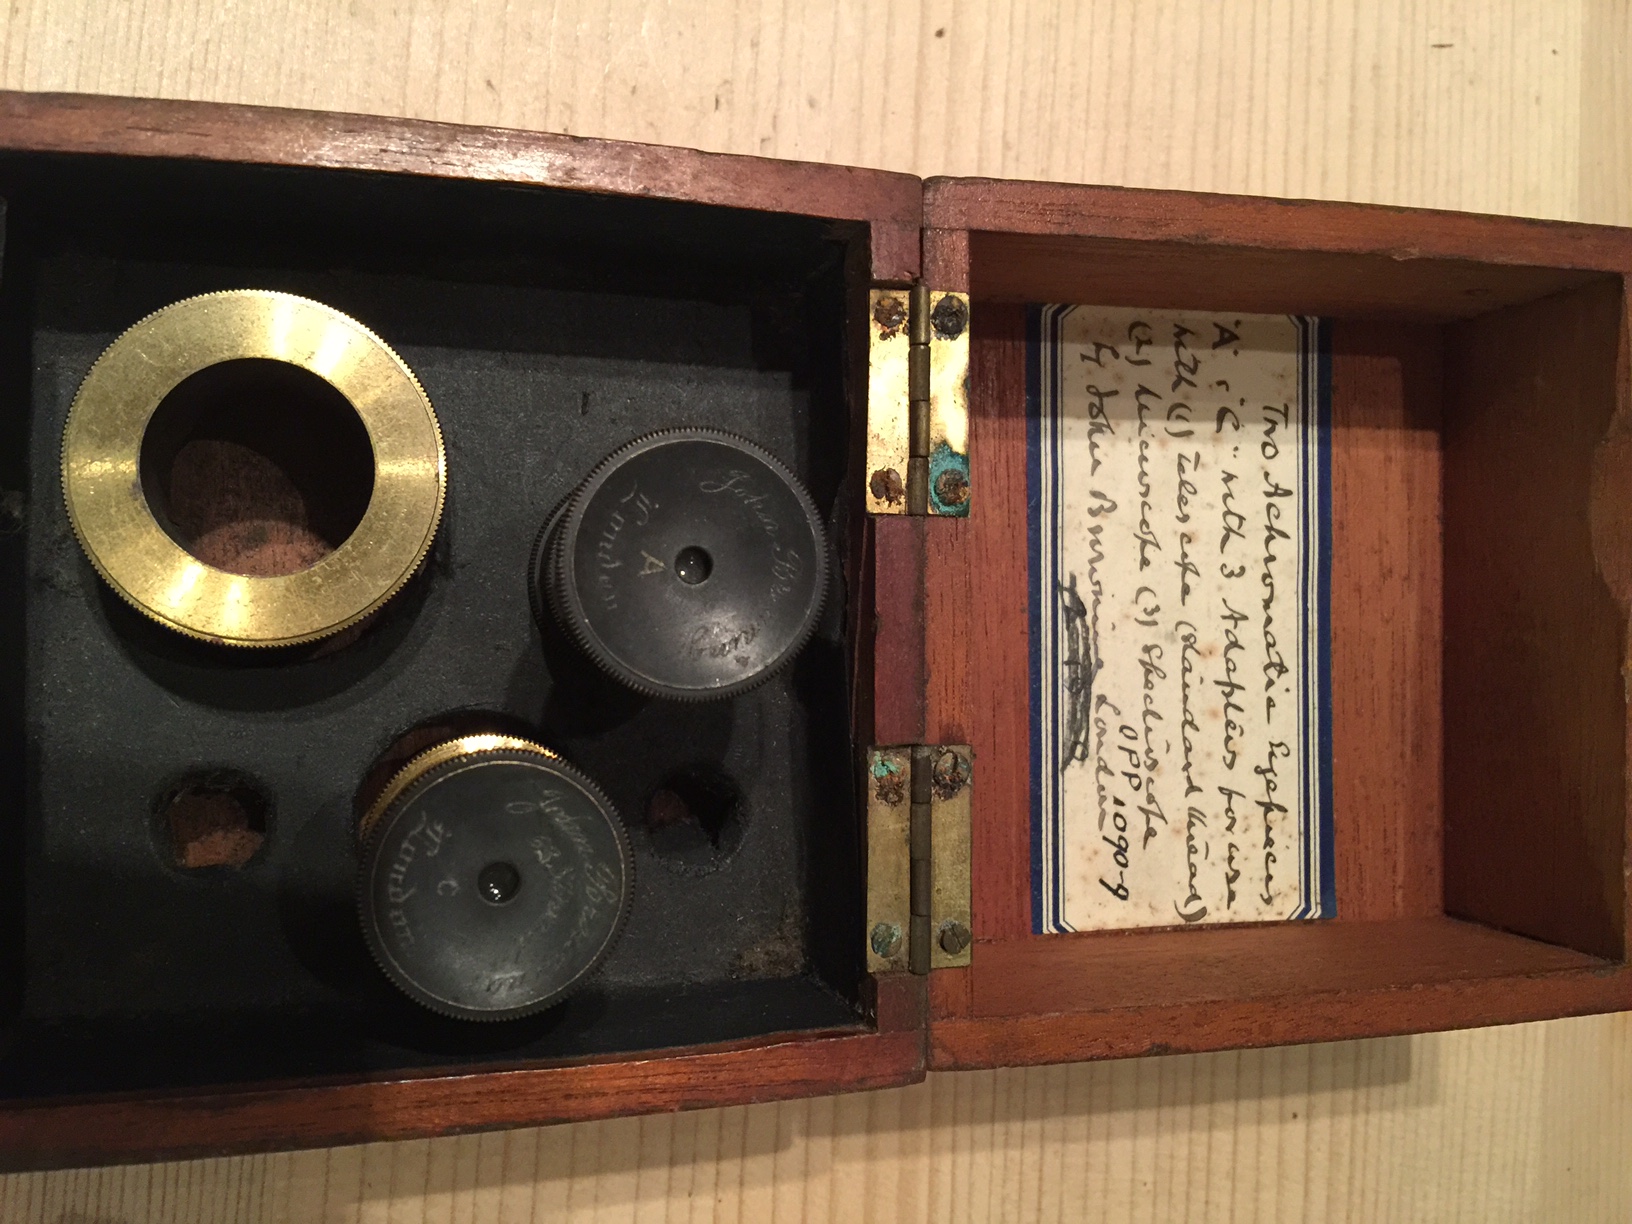 Two Achromatic Eyepieces
"A" & "C" with 3 Adapters for use
with (1) Telescope (standard thread)
(2) Microscope (3) Spectroscope
by John Browning London
OPP 1090-9
John Browning
London
A
John Browning
London
C